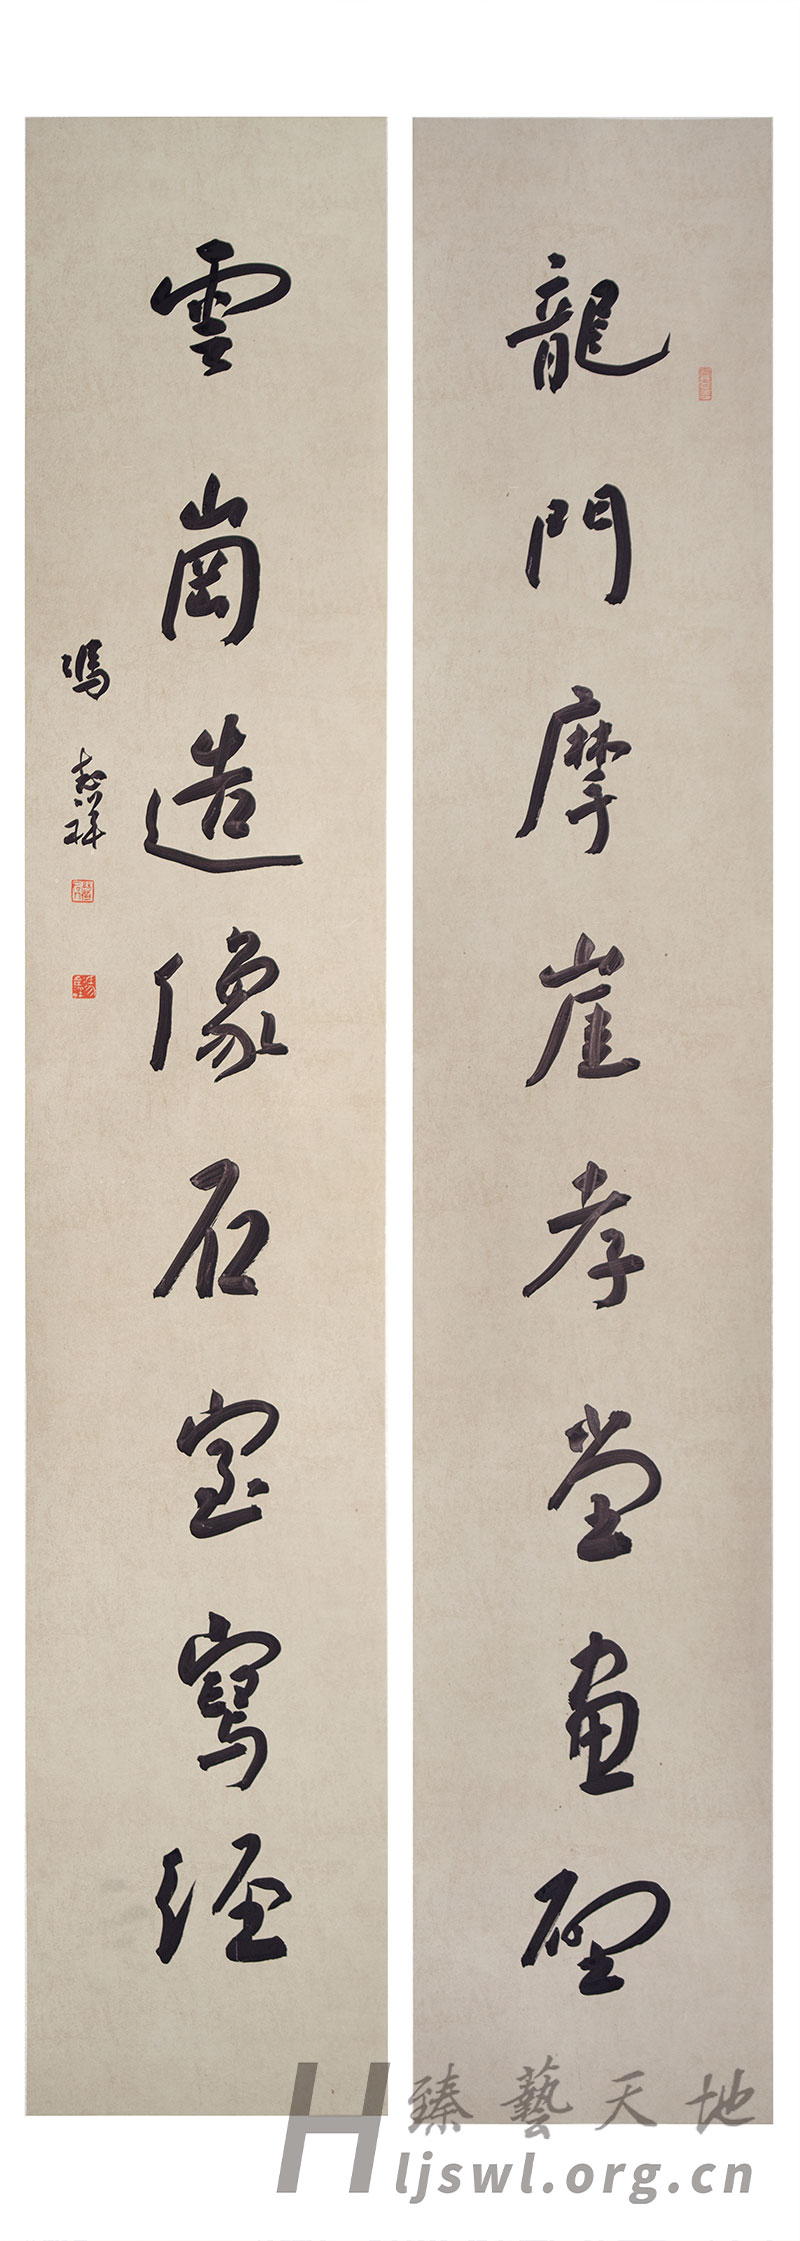 龍門摩崖孝堂畫壁
雲崗造像石室寫經
馮志祥
臻藝天地
Hljswl.org.cn